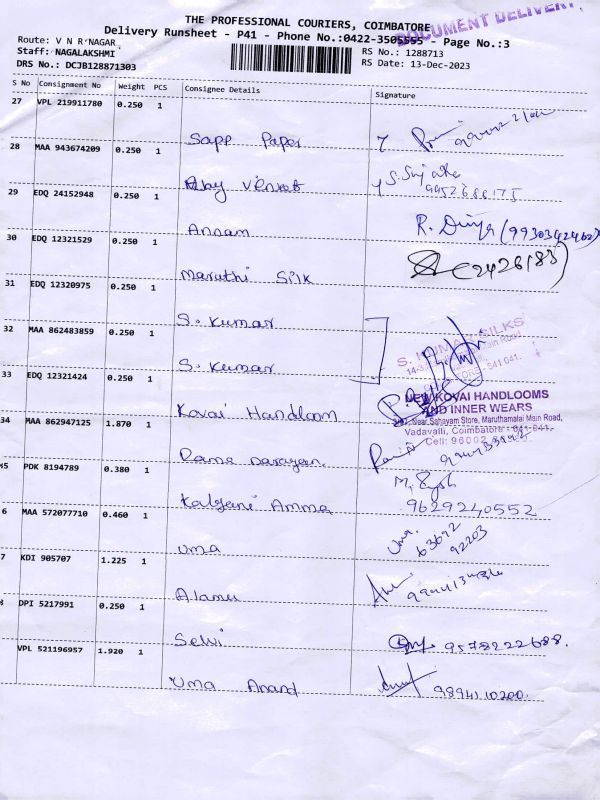 DOCUMENT DELIVERY
THE PROFESSIONAL COURIERS, COIMBATORE
Delivery Runsheet - P41 - Phone No.:0422-3505555 - Page No.:3
Route: V N R NAGAR
Staff: NAGALAKSHMI
DRS No.: DCJB128871303
RS No.: 1288713
RS Date: 13-Dec-2023
S No Consignment No Weight PCS Consignee Details Signature
27 VPL 219911780 0.250 1
Sapp Paper
28 MAA 943674209 0.250 1
Venkat S. Sujatha
29 EDQ 24152948 0.250 1
Annam R. Divya
30 EDQ 12321529 0.250 1
Maruthi Silk
31 EDQ 12320975 0.250 1
S. Kumar
S. KUMAR SILKS
Main Road
641 041.
32 MAA 862483859 0.250 1
S. Kumar
33 EDQ 12321424 0.250 1
NEW KOVAI HANDLOOMS
AND INNER WEARS
Near Sahayam Store, Maruthamalai Main Road,
Vadavalli, Coimbatore - 641 041.
Cell: 96002
Kovai Handloom
34 MAA 862947125 1.870 1
Rama Narayan
45 PDK 8194789 0.380 1
Kalyani Amma 9629240552
6 MAA 572077710 0.460 1
Uma Uma 63692
92203
7 KDI 905707 1.225 1
Alamu
DPI 5217991 0.250 1
Selvi 9578222688.
VPL 521196957 1.920 1
Uma Anand 9894110200.